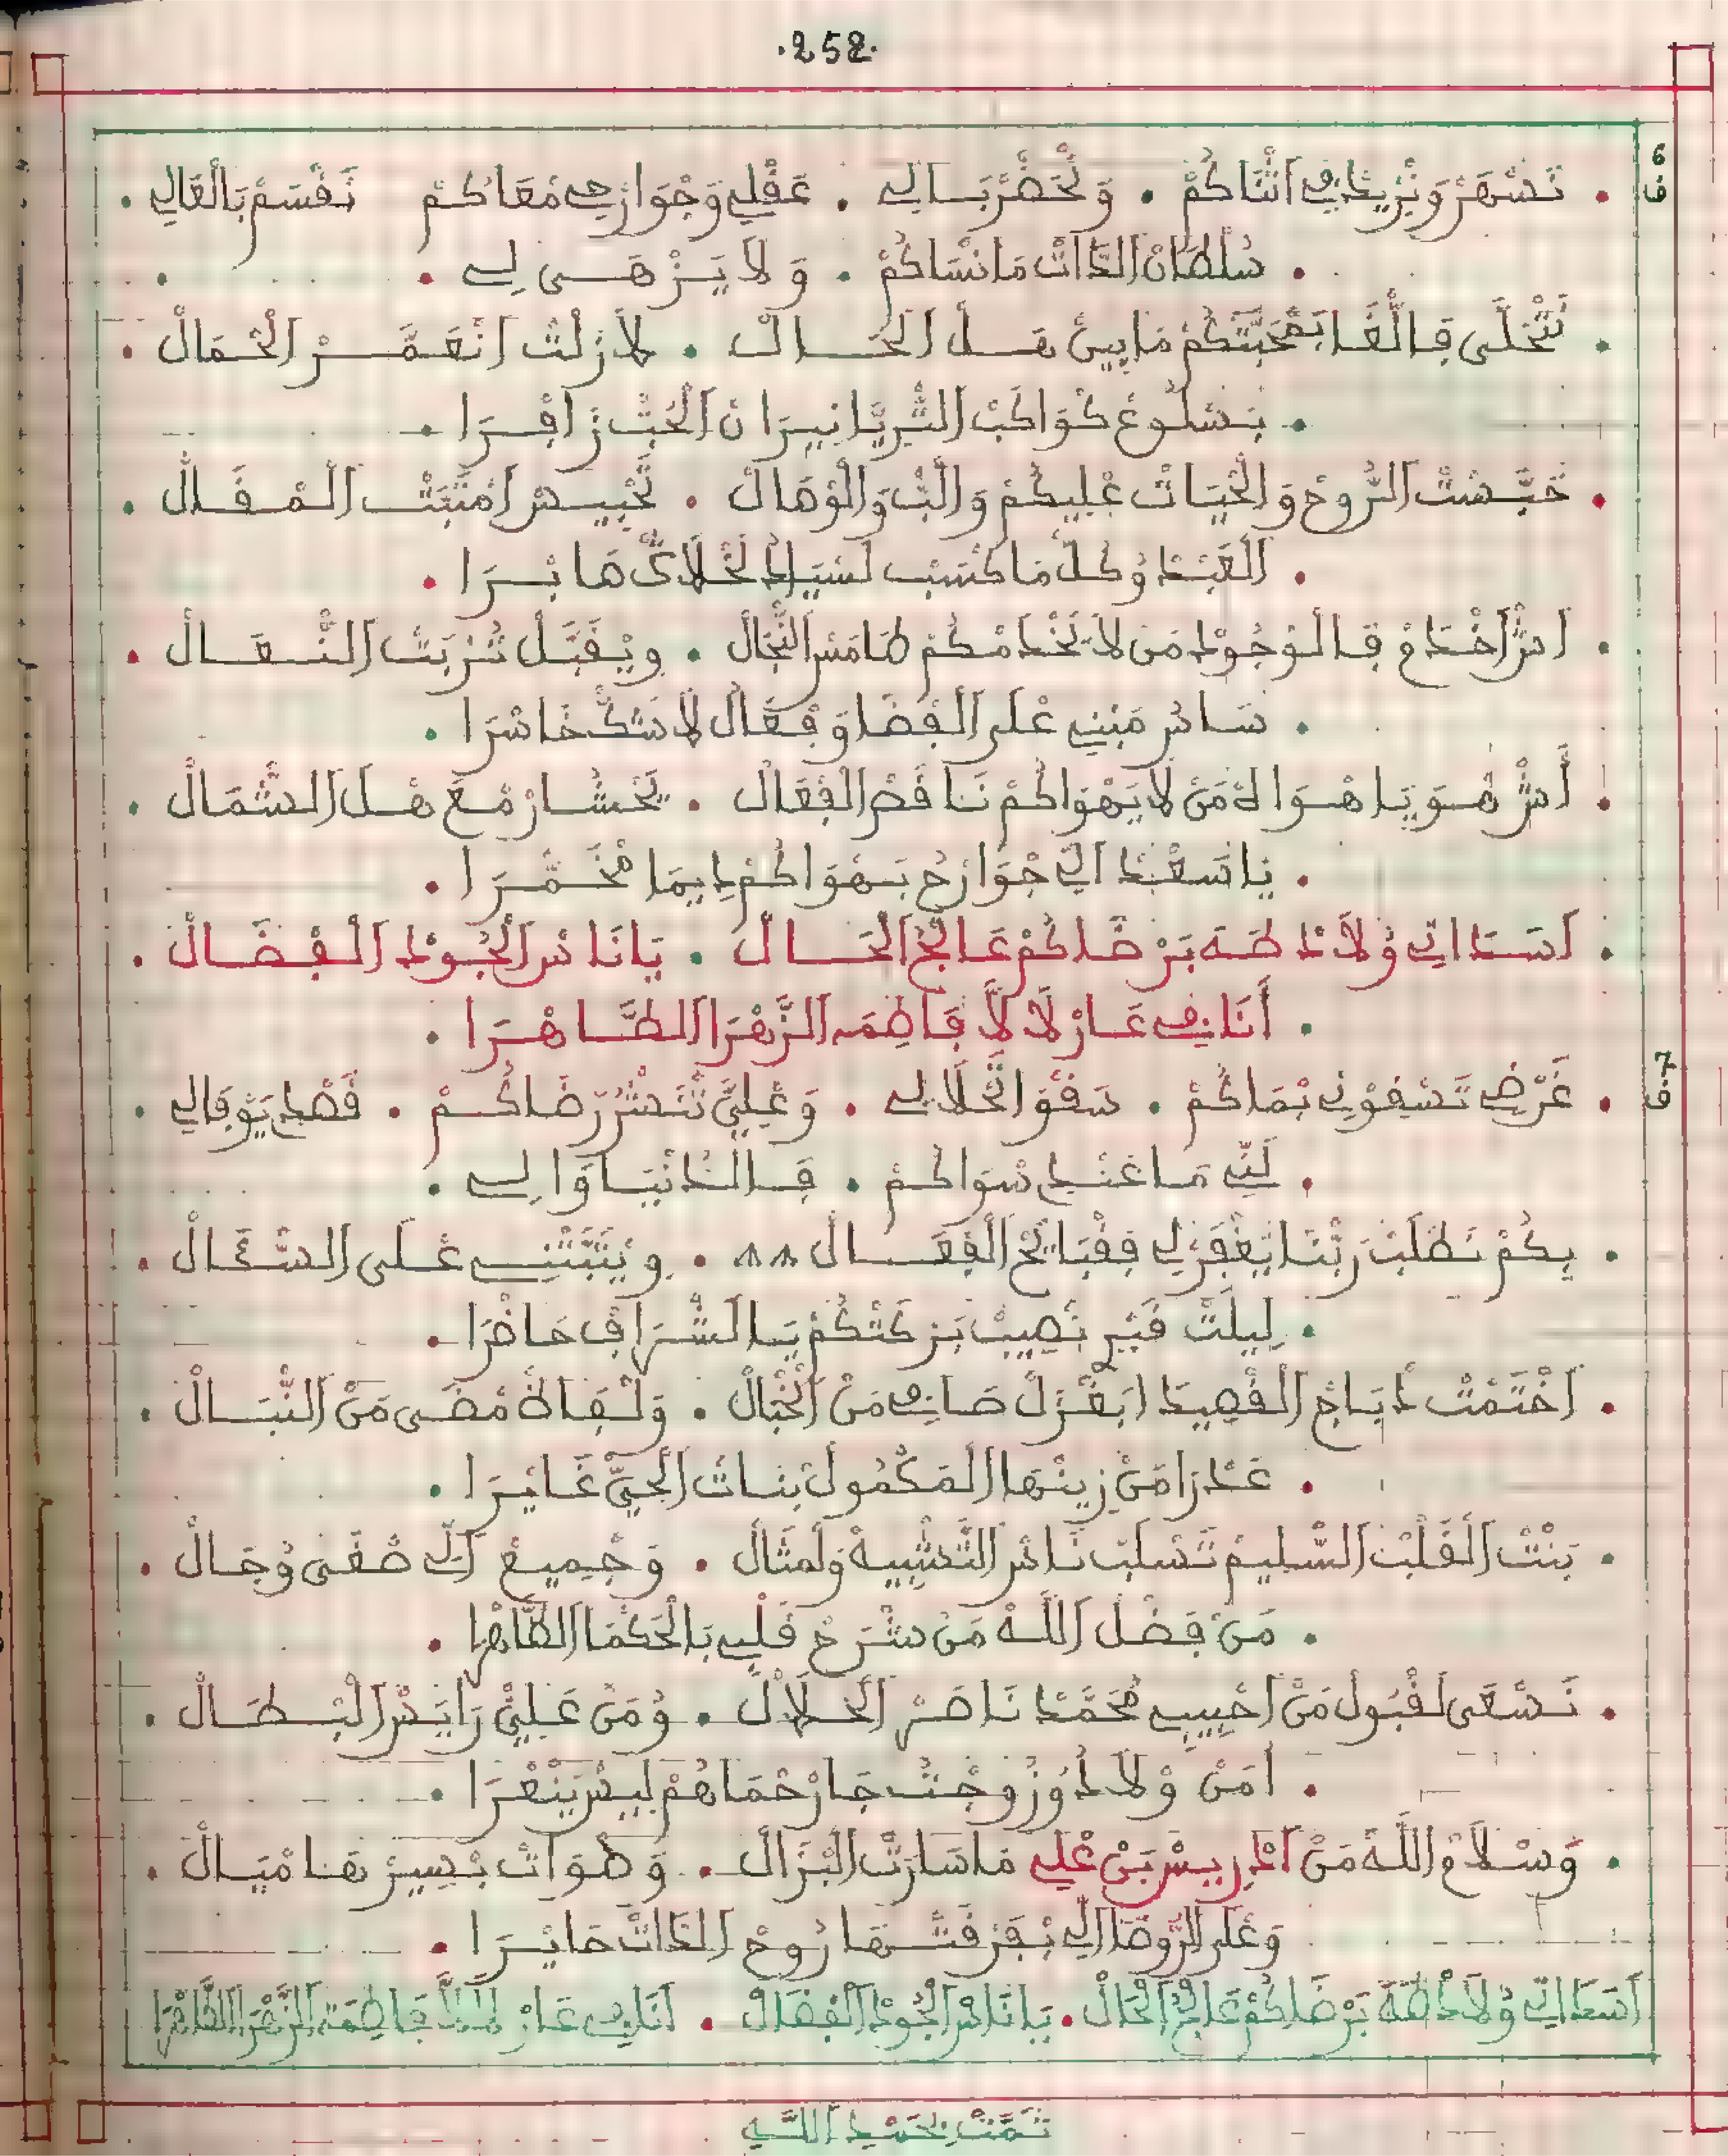 .252.
6 ف
. نَسْهَرْ وَنْزِيدْ فِي اثْنَاكُمْ . وَنْحَضَّرْ بَالِي . عَقْلِي وَجْوَارْحِي مْعَاكُمْ نَقْسَمْ بَالْعَالِي .
. سُلْطَانْ الذَّاتْ مَا نْسَاكُمْ . وَلَا يَزْهَى لِي .
. نَتْحَلَّى فِالْغَا بَمْحَبَّتْكُمْ مَابِينْ هَلْ الحَالْ . لَازَلْتْ انْعَمَّرْ الْحْمَالْ .
. بَسْلُوعْ كْوَاكَبْ الثّْرِيَّا نِيرَانْ الْحُبّْ زَافْرَا .
. حَبَّسْتْ الرُّوحْ وَالْحْيَاتْ عْلِيكُمْ وَالْبْ وَالْوْهَالْ . تَحْبِيسْ امْثَبَّتْ الْمْقَالْ .
. الْعَبْدْ وُكُلّْ مَا كْسَبْ لَسْيَادْ لَخْلَايَقْ هَا بْرَا .
. اشْ اخْدَمْ فِالْوْجُودْ مَنْ لَا يَخْدَمْكُمْ طَامَسْ النّْجَالْ . وِيْقَبَّلْ تُرْبَتْ النّْعَالْ .
. سَاسُ مَبْنِي عْلَى الْفْضَا وَفْعَالُ لَا شَكّْ خَاسْرَا .
. أَشْ هُوَ يَا هْوَاهْ مَنْ لَا يَهْوَاكُمْ نَاقَصْ الْفْعَالْ . يَحْشَارْ مْعَ هْلْ الشّْمَالْ .
. يَا سَعْدْ الِّي جْوَارْحُ بَهْوَاكُمْ دِيمَا مْخَمَّرَا .
. اَسَدَاتِي وُلَادْ طَهَ بَرْضَاكُمْ عَالَجْ الْحَالْ . يَا نَاسْ الْجُودْ الْفْضَالْ .
. أَنَا فِي عَارْ لَالَّا فَاطِمَه الزَّهْرَا الطَّاهْرَا .
7 ف
. غَرْضِي تَسْقِوْنِي بْمَاكُمْ . سَقْوَ انْحْلَا لِي . وَعْلِيَّ نَتْشُرْ رْضَاكُمْ . قَصْدِي يَوْفَا لِي .
. لَنِّي مَا عَنْدِي سْوَاكُمْ . فِالدَّنْيَا وَالِي .
. بِكُمْ نَطْلَبْ رَبّْنَا يَغْفَرْ لِي فِقْبَايَحْ الْفْعَالْ . وِيْثَبَّتْنِي عْلَى السّْعَالْ .
. لِيلَتْ قَبْرِ نْصِيبْ بَرْكَتْكُمْ يَا الشّْرَافْ حَاضْرَا .
. اخْتَمْتْ دْبَاجْ الْقْصِيدَا بَغْزَلْ صَافِي مَنْ الْخْبَالْ . وَلْفَاظُ مْضَى مَنْ النّْبَالْ .
. عَدْرَا مَنْ زِينْهَا الْمَكْمُولْ بْنَاتْ الْحَيّْ غَايْرَا .
. بَنْتْ الْقَلْبْ السّْلِيمْ تَسْلَبْ نَاسْ التَّشْبِيهْ وَلَمْثَالْ . وَجْمِيعْ الِّي صْغَى وُجَالْ .
. مَنْ فَضْلْ اللَّهْ مَنْ شْرَحْ قَلْبِي بَالْحَكْمَا الظَّاهْرَا .
. نَسْعَى لَقْبُولْ مَنْ احْبِيبِي مْحَمَّدْ نَاصَرْ الْحْلَالْ . وُمَنْ عَلِيّْ رَايَسْ الْبْطَالْ .
. امَنْ وْلَادُ وُزُوجْتُ جَارْ حْمَاهُمْ لِيسْ يَنْعْرَا .
. وَسْلَامْ اللَّهْ مَنْ ادْرِيسْ بَنْ عْلِي مَا سَارَتْ الْبْزَالْ . وَطْوَاتْ بْسِيرْهَا مْيَالْ .
وَعْلَى الرَّوضَا الِّي بْفَرْقَتْهَا رُوحْ الذَّاتْ حَايْرَا .
اَسَدَاتِي وُلَادْ طَهَ بَرْضَاكُمْ عَالَجْ الْحَالْ . يَا نَاسْ الْجُودْ الْفْضَالْ . اَنَا فِي عَارْ لَالَّا فَاطِمَه الزَّهْرَا الطَّاهْرَا
تَمَّتْ بِحَمْدِ اللَّهِ